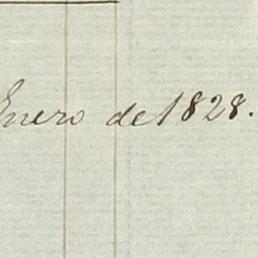 Enero de 1828.